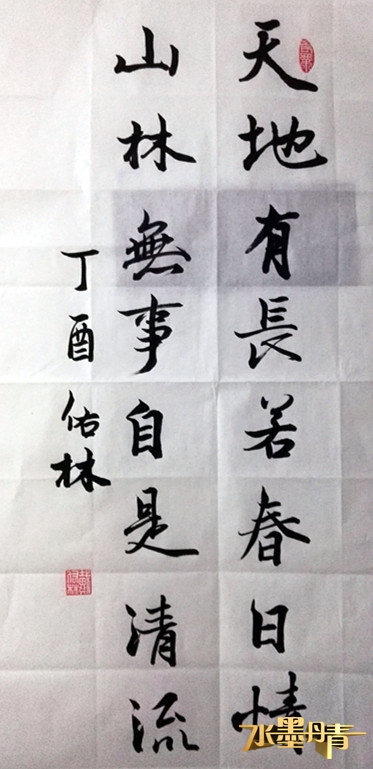 天地有長若春日情
山林無事自是清流
丁酉佑林
水墨丹青